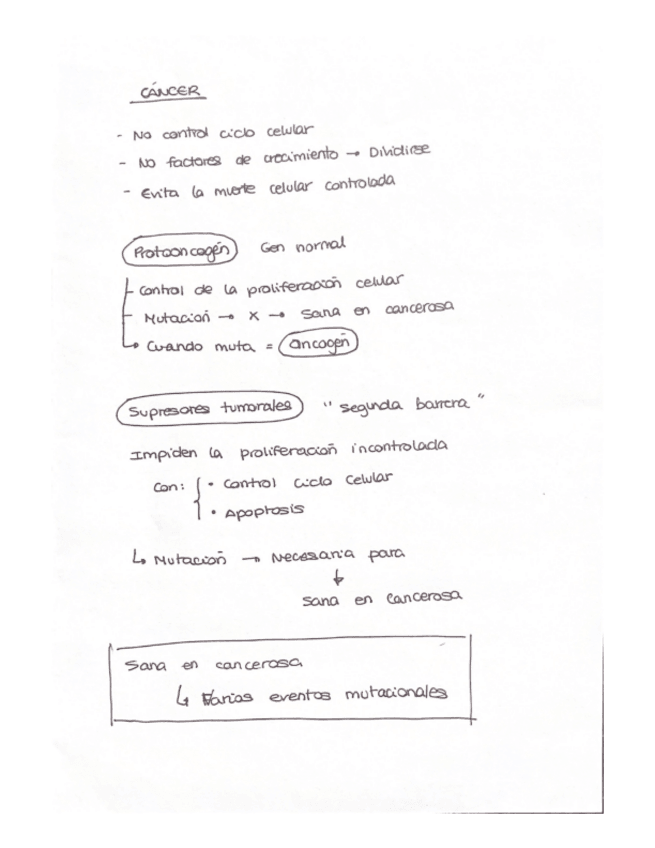 CÁNCER
- No control ciclo celular
- No factores de crecimiento → Dividirse
- Evita la muerte celular controlada
Protooncogén Gen normal
Control de la proliferación celular
Mutación → X → Sana en cancerosa
Cuando muta = Oncogén
Supresores tumorales "segunda barrera"
Impiden la proliferación incontrolada
Con: { • Control ciclo celular
• Apoptosis
↳ Mutación → Necesaria para
↓
Sana en cancerosa
Sana en cancerosa
↳ Varios eventos mutacionales